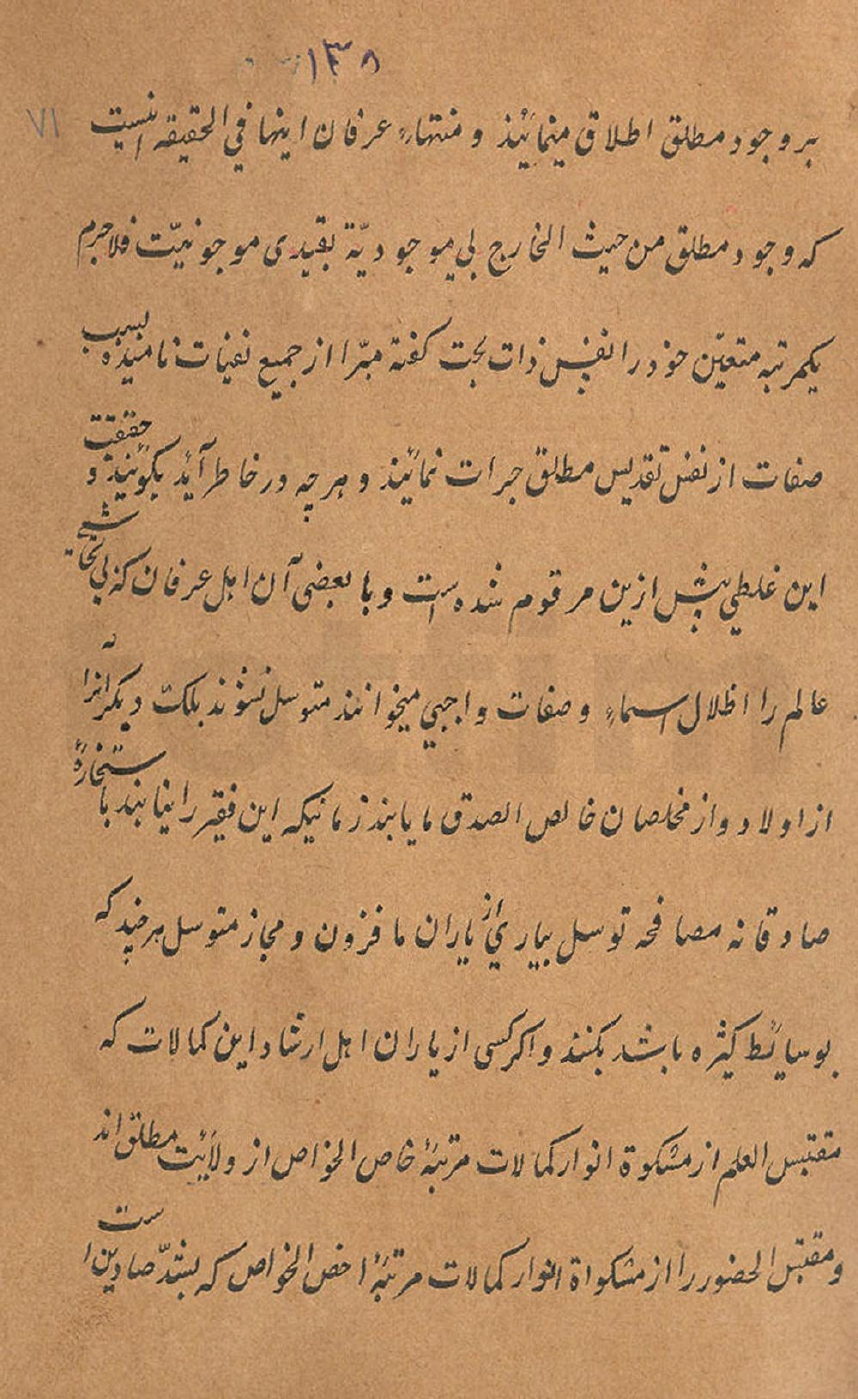 ۱۳۸
۷۱
بر وجود مطلق اطلاق مینمائیند و منتهاء عرفان اینها فی الحقیقه اینست
که وجود مطلق من حیث الخارج بی موجودیّة بقیدی موجو نیّت فلاجرم
یکمرتبه متعیّن خود را نفس ذات بحت گفته مبرّا از جمیع نامیده بسبب
صفات از نفس تقدیس مطلق جرات نمائیند و هر چه در خاطر آید بگویند و حقیقت
این غلطی پیش ازین مرقوم شده است و با بعضی آن اهل عرفان که بی تحاشی
عالم را اظلال اسماء و صفات واجبی میخوانند متوسل نشوند بلکه دیگرانرا
از اولاد و از مخلصان خالص الصدق ما یابند زمانیکه این فقیر را نیابند با ستخارهٔ
صادقانه مصافحه توسل بیاری از یاران ماذون و مجاز متوسل هر چند که
بوسائط کثیره باشد بکنند و اکر کسی از یاران اهل ارشاد این کمالات که
مقتبس العلم از مشکوة انوار کمالات مرتبهٔ خاص الخواص از ولایت مطلق اند
و مقتبس الحضور را از مشکواة انوار کمالات مرتبهٔ اخص الخواص که است